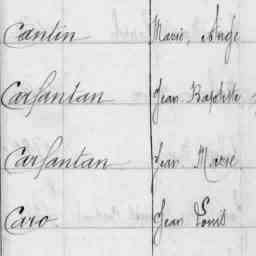 Cantin Marie, Ange
Carfantan Jean Baptiste
Carfantan Jean Marie
Caro Jean Louis